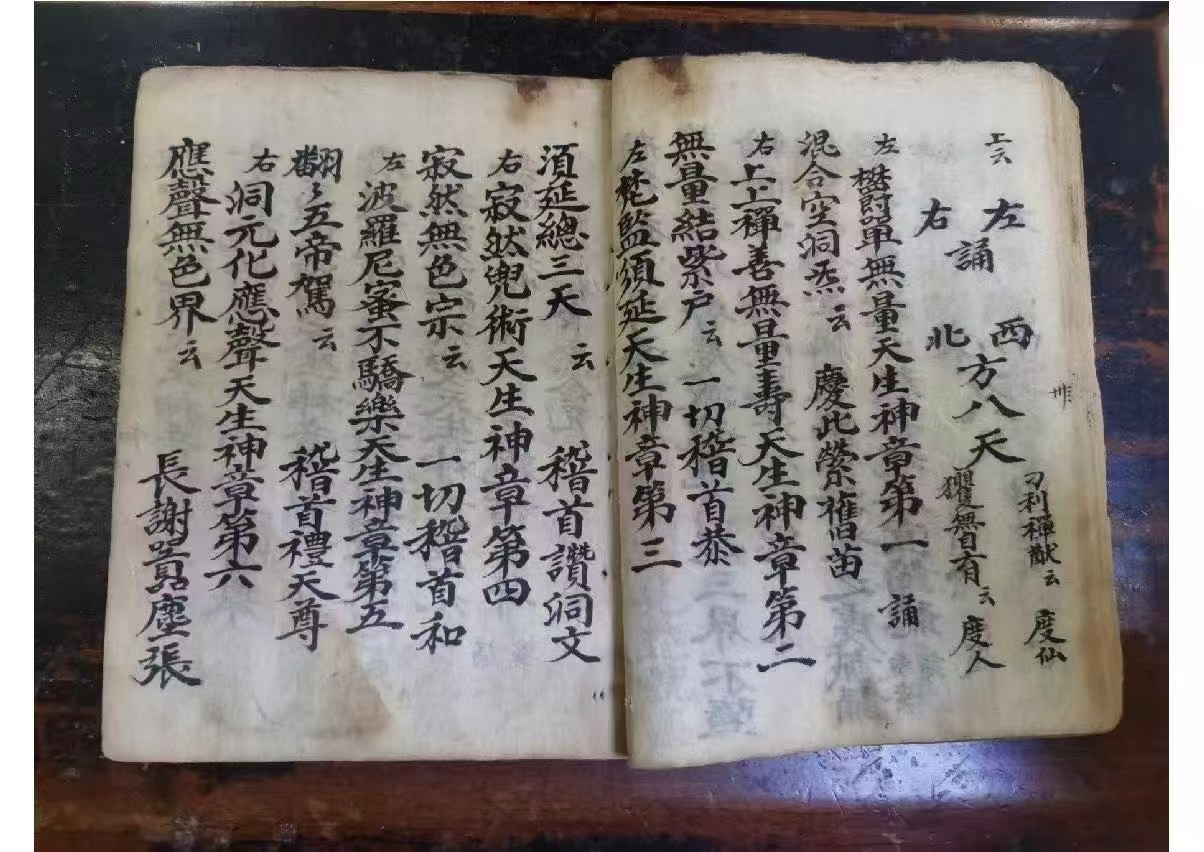 上云
左 西 刁利禪猷云 度仙
右 誦 北 方八天 玃無自育云 度人
左 欝單無量天生神章第一 誦
混合空洞炁云 慶此縈舊苗
右 上上禪善無量壽天生神章第二
無量結紫戶云 一切稽首恭
左 梵監須延天生神章第三
須延總三天云 稽首讚洞文
右 寂然兜術天生神章第四
寂然無色宗云 一切稽首和
左 波羅尼蜜不驕樂天生神章第五
翻々五帝駕云 稽首禮天尊
右 洞元化應聲天生神章第六
應聲無色界云 長謝囂塵張